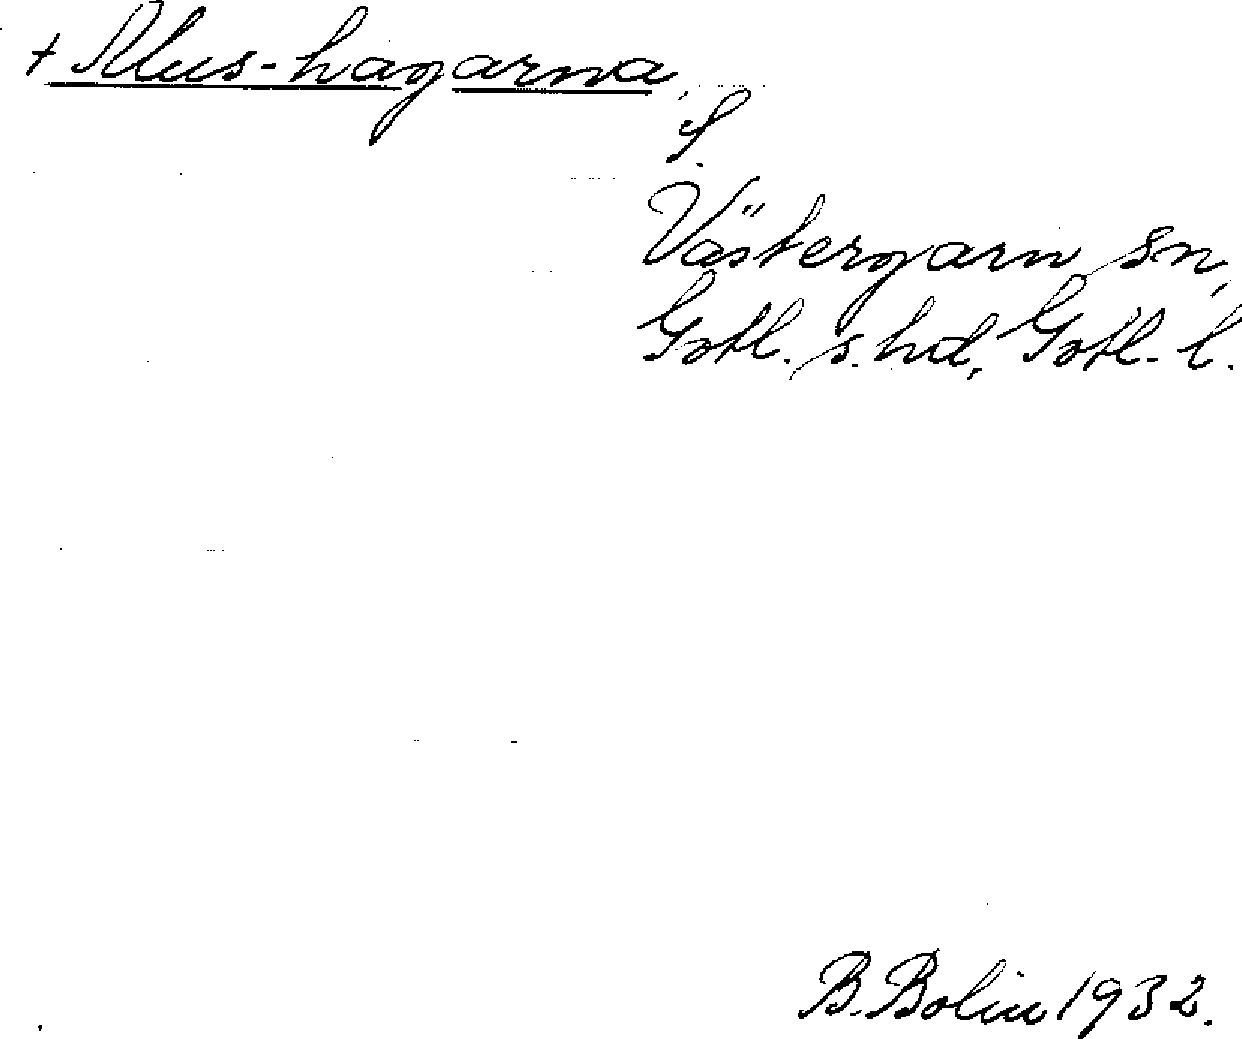 + Alus-hagarna,
S.
Västergarn sn,
Gotl. s. hd, Gotl. l.
B. Bolin 1932.